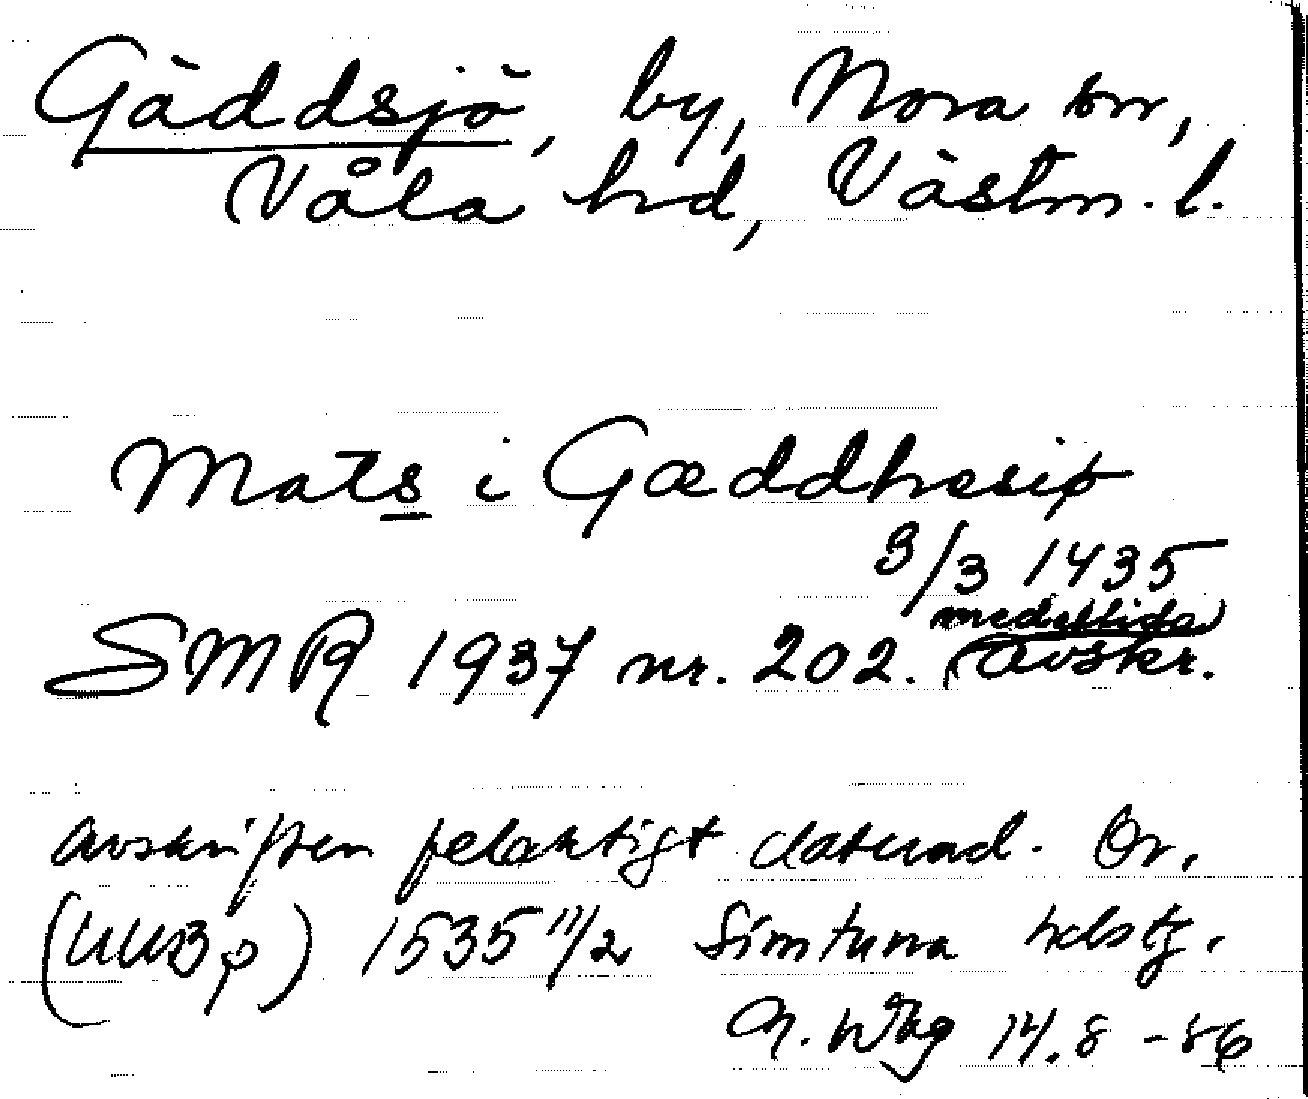 Gäddsjö, by, Nora sn,
Våla hd, Västm. l.
Mats i Gæddhesiø
3/3 1435
SMR 1937 nr. 202. (medeltida)
avskr.
Avskriften felaktigt daterad. Or.
(UUB p) 1535 11/2 Simtuna hdstg.
14.8 -86